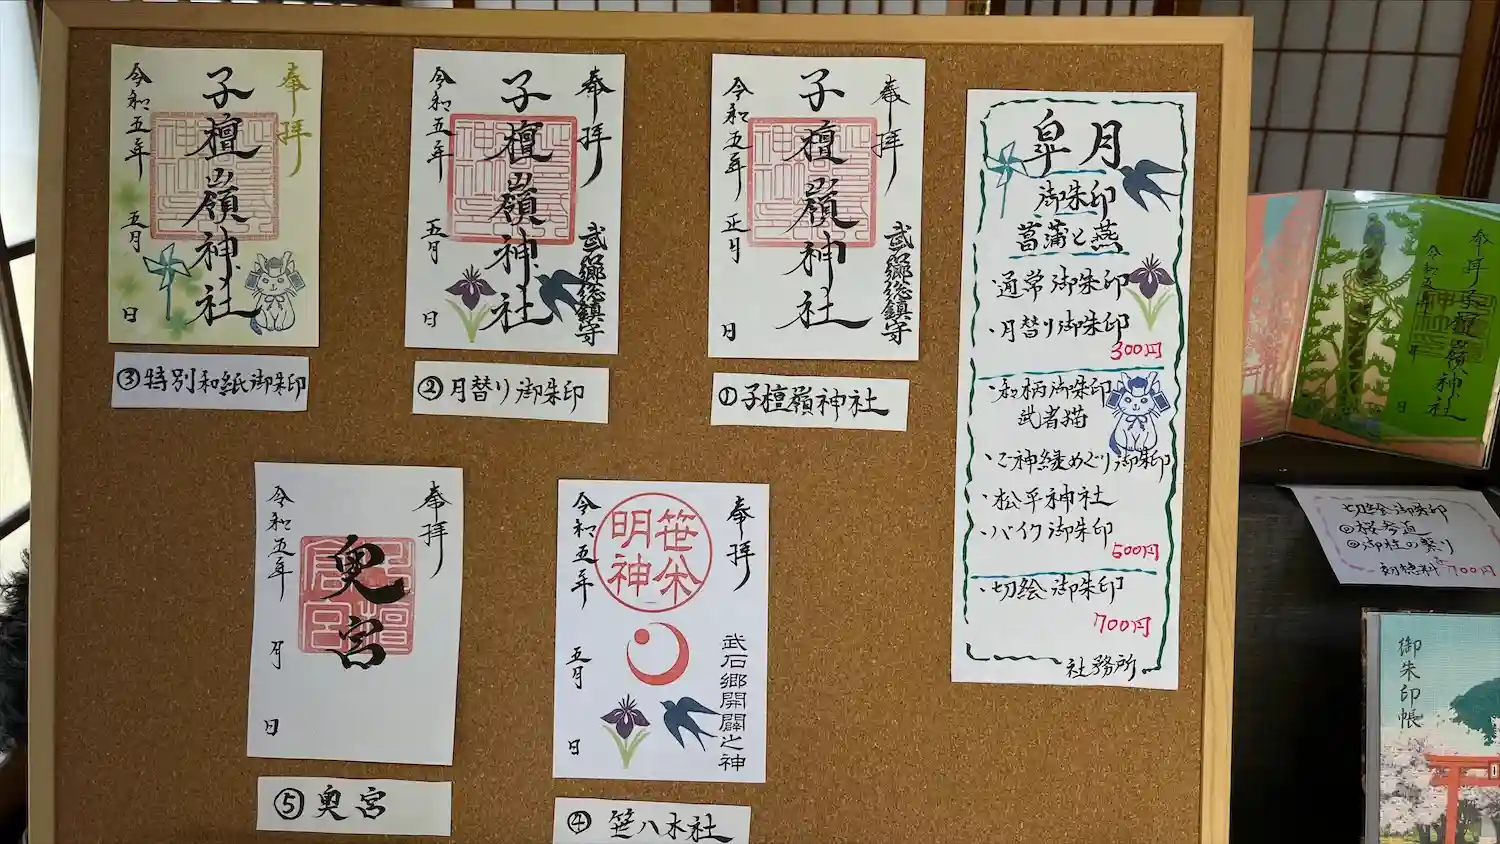 奉拝
子檀嶺神社
令和五年 五月 日
③特別和紙御朱印
奉拝
武石郷総鎮守
子檀嶺神社
令和五年 五月 日
②月替り御朱印
奉拝
武石郷総鎮守
子檀嶺神社
令和五年 正月 日
①子檀嶺神社
奉拝
奥宮
令和五年 月 日
⑤奥宮
奉拝
笹焼
明神
武石郷開闢之神
令和五年 五月 日
④笹八木社
皐月
御朱印
菖蒲と燕
・通常御朱印
・月替り御朱印
300円
・和柄御朱印
武者猫
・ご神縁めぐり御朱印
・松平神社
・バイク御朱印
500円
・切絵御朱印
700円
社務所
奉拝
子檀嶺神社
日
切絵御朱印
①桜参道
②御柱の祭り
初穂料を700円
御朱印帳